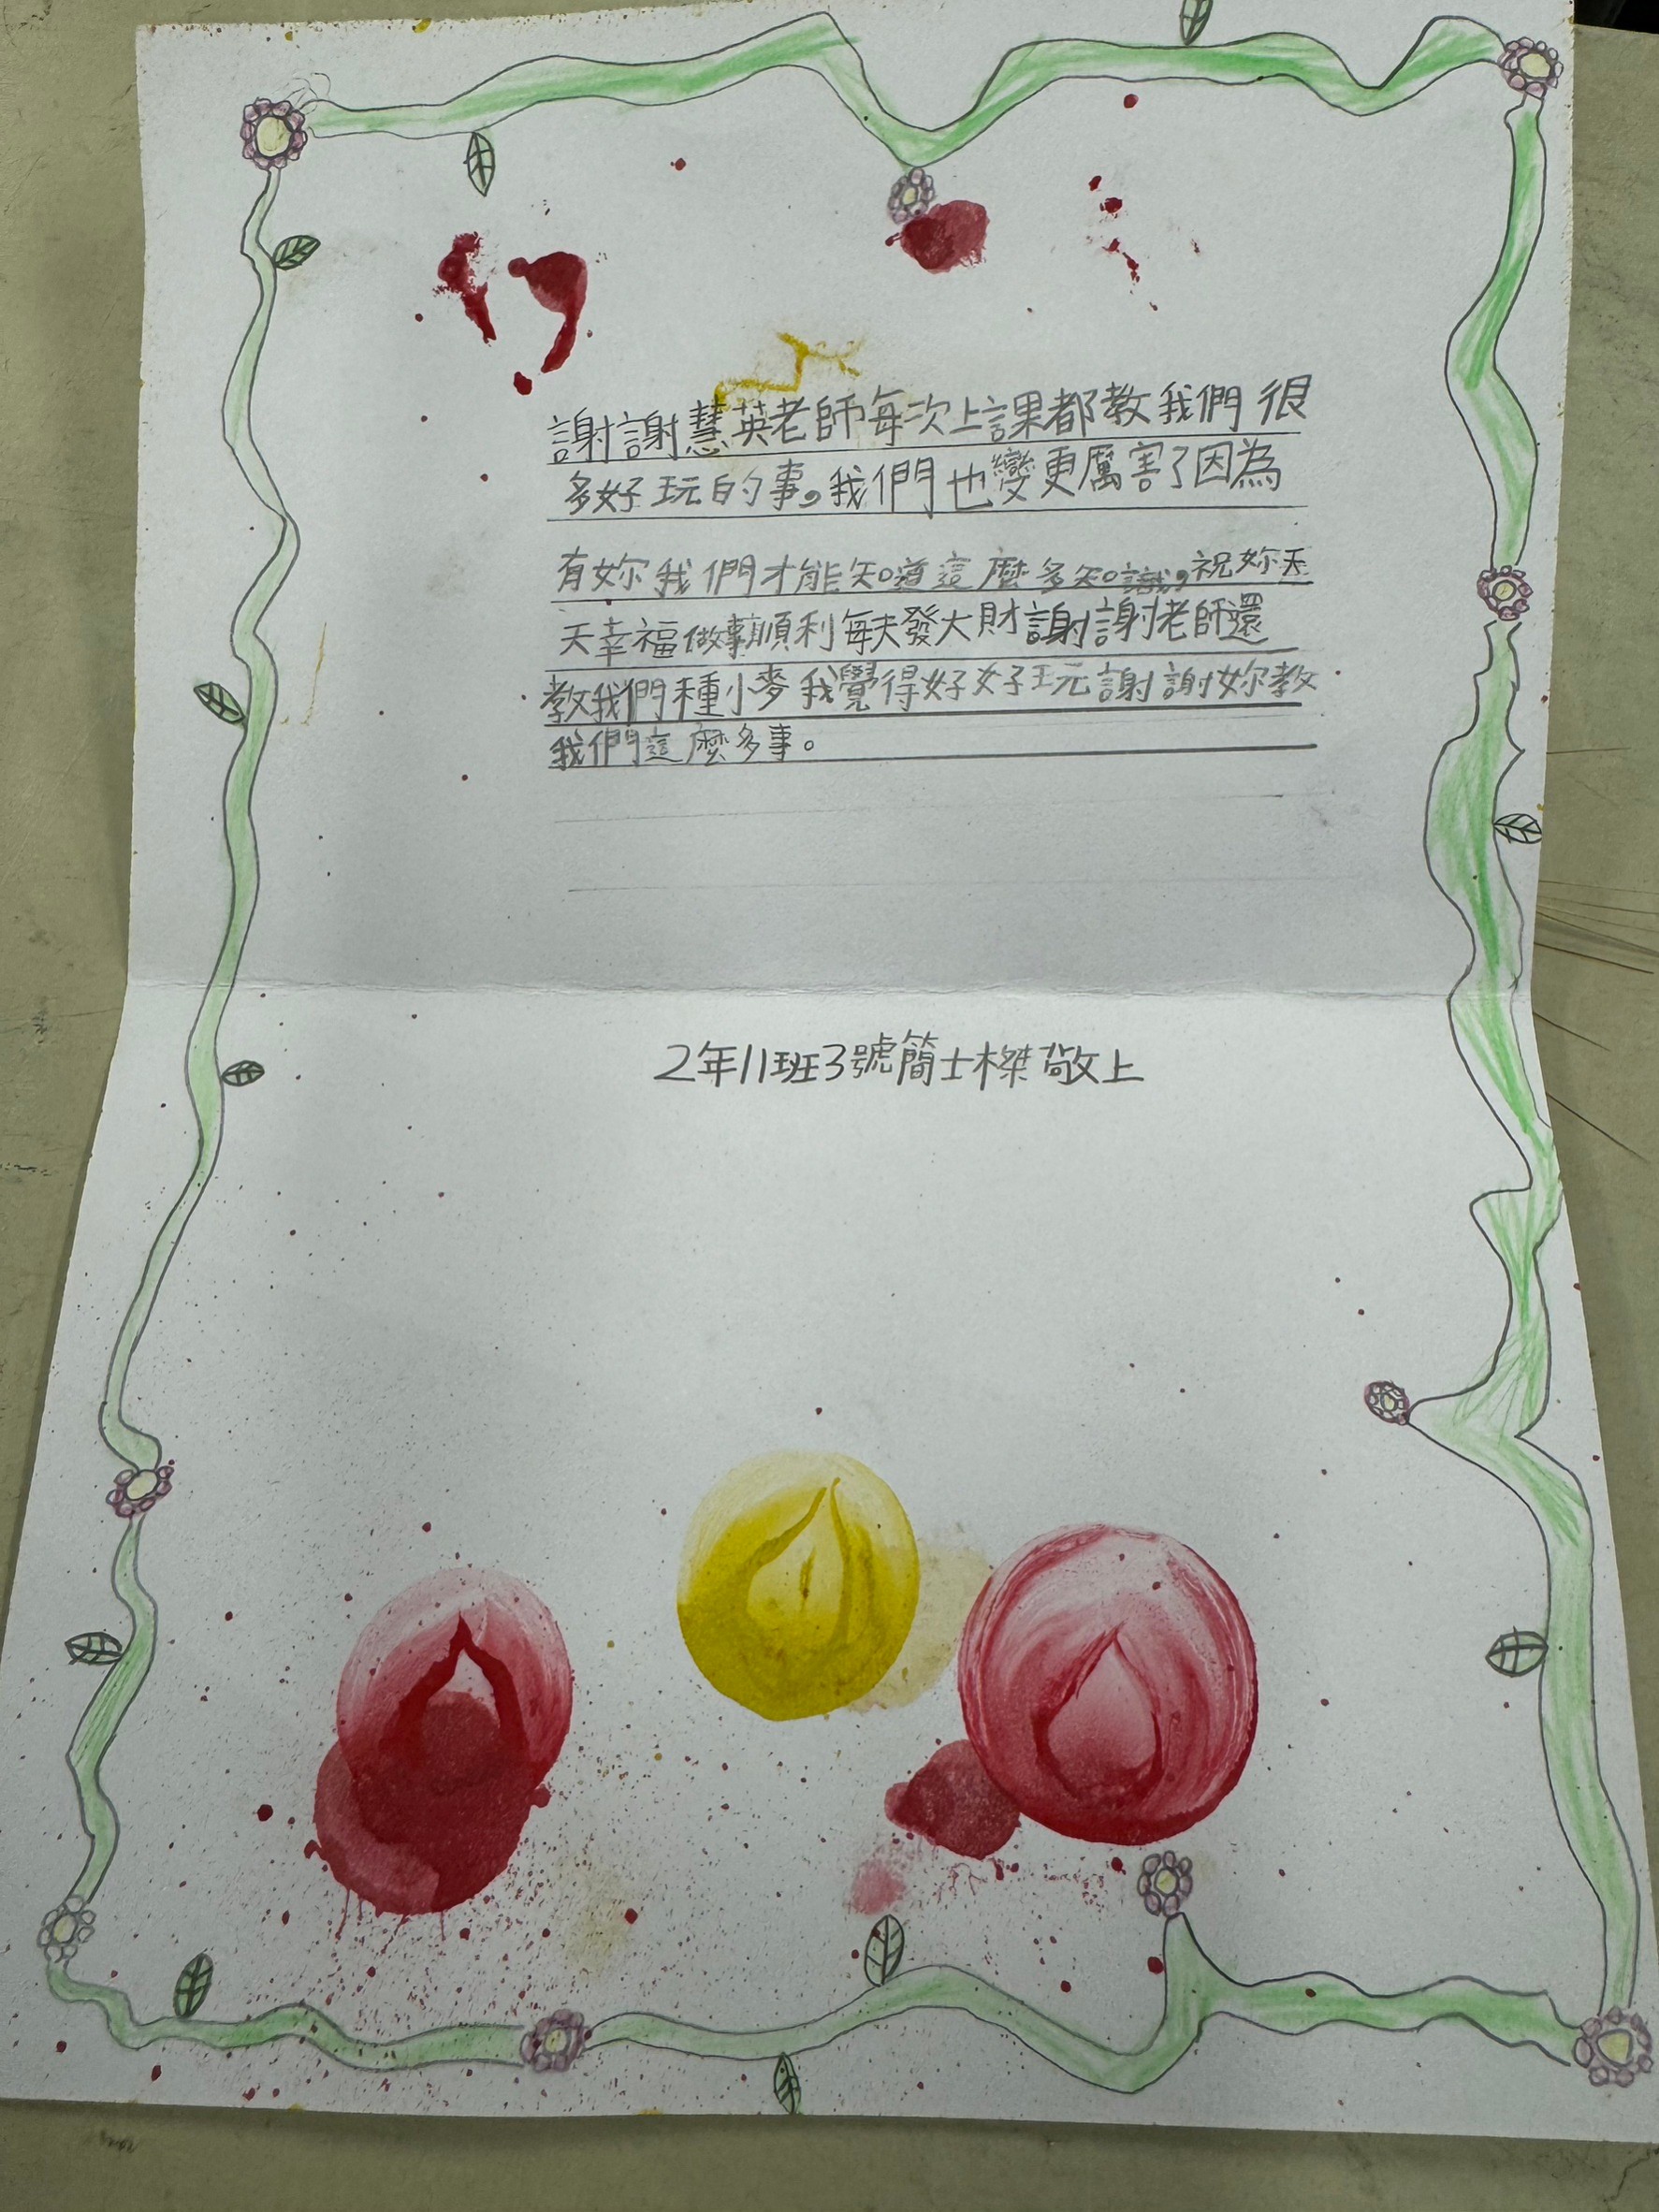 謝謝慧英老師每次上課都教我們很
多好玩的事，我們也變更厲害了因為
有妳我們才能知道這麼多知識，祝妳天
天幸福做事順利每天發大財謝謝老師還
教我們種小麥我覺得好好玩謝謝妳教
我們這麼多事。
2年11班3號簡士桀敬上